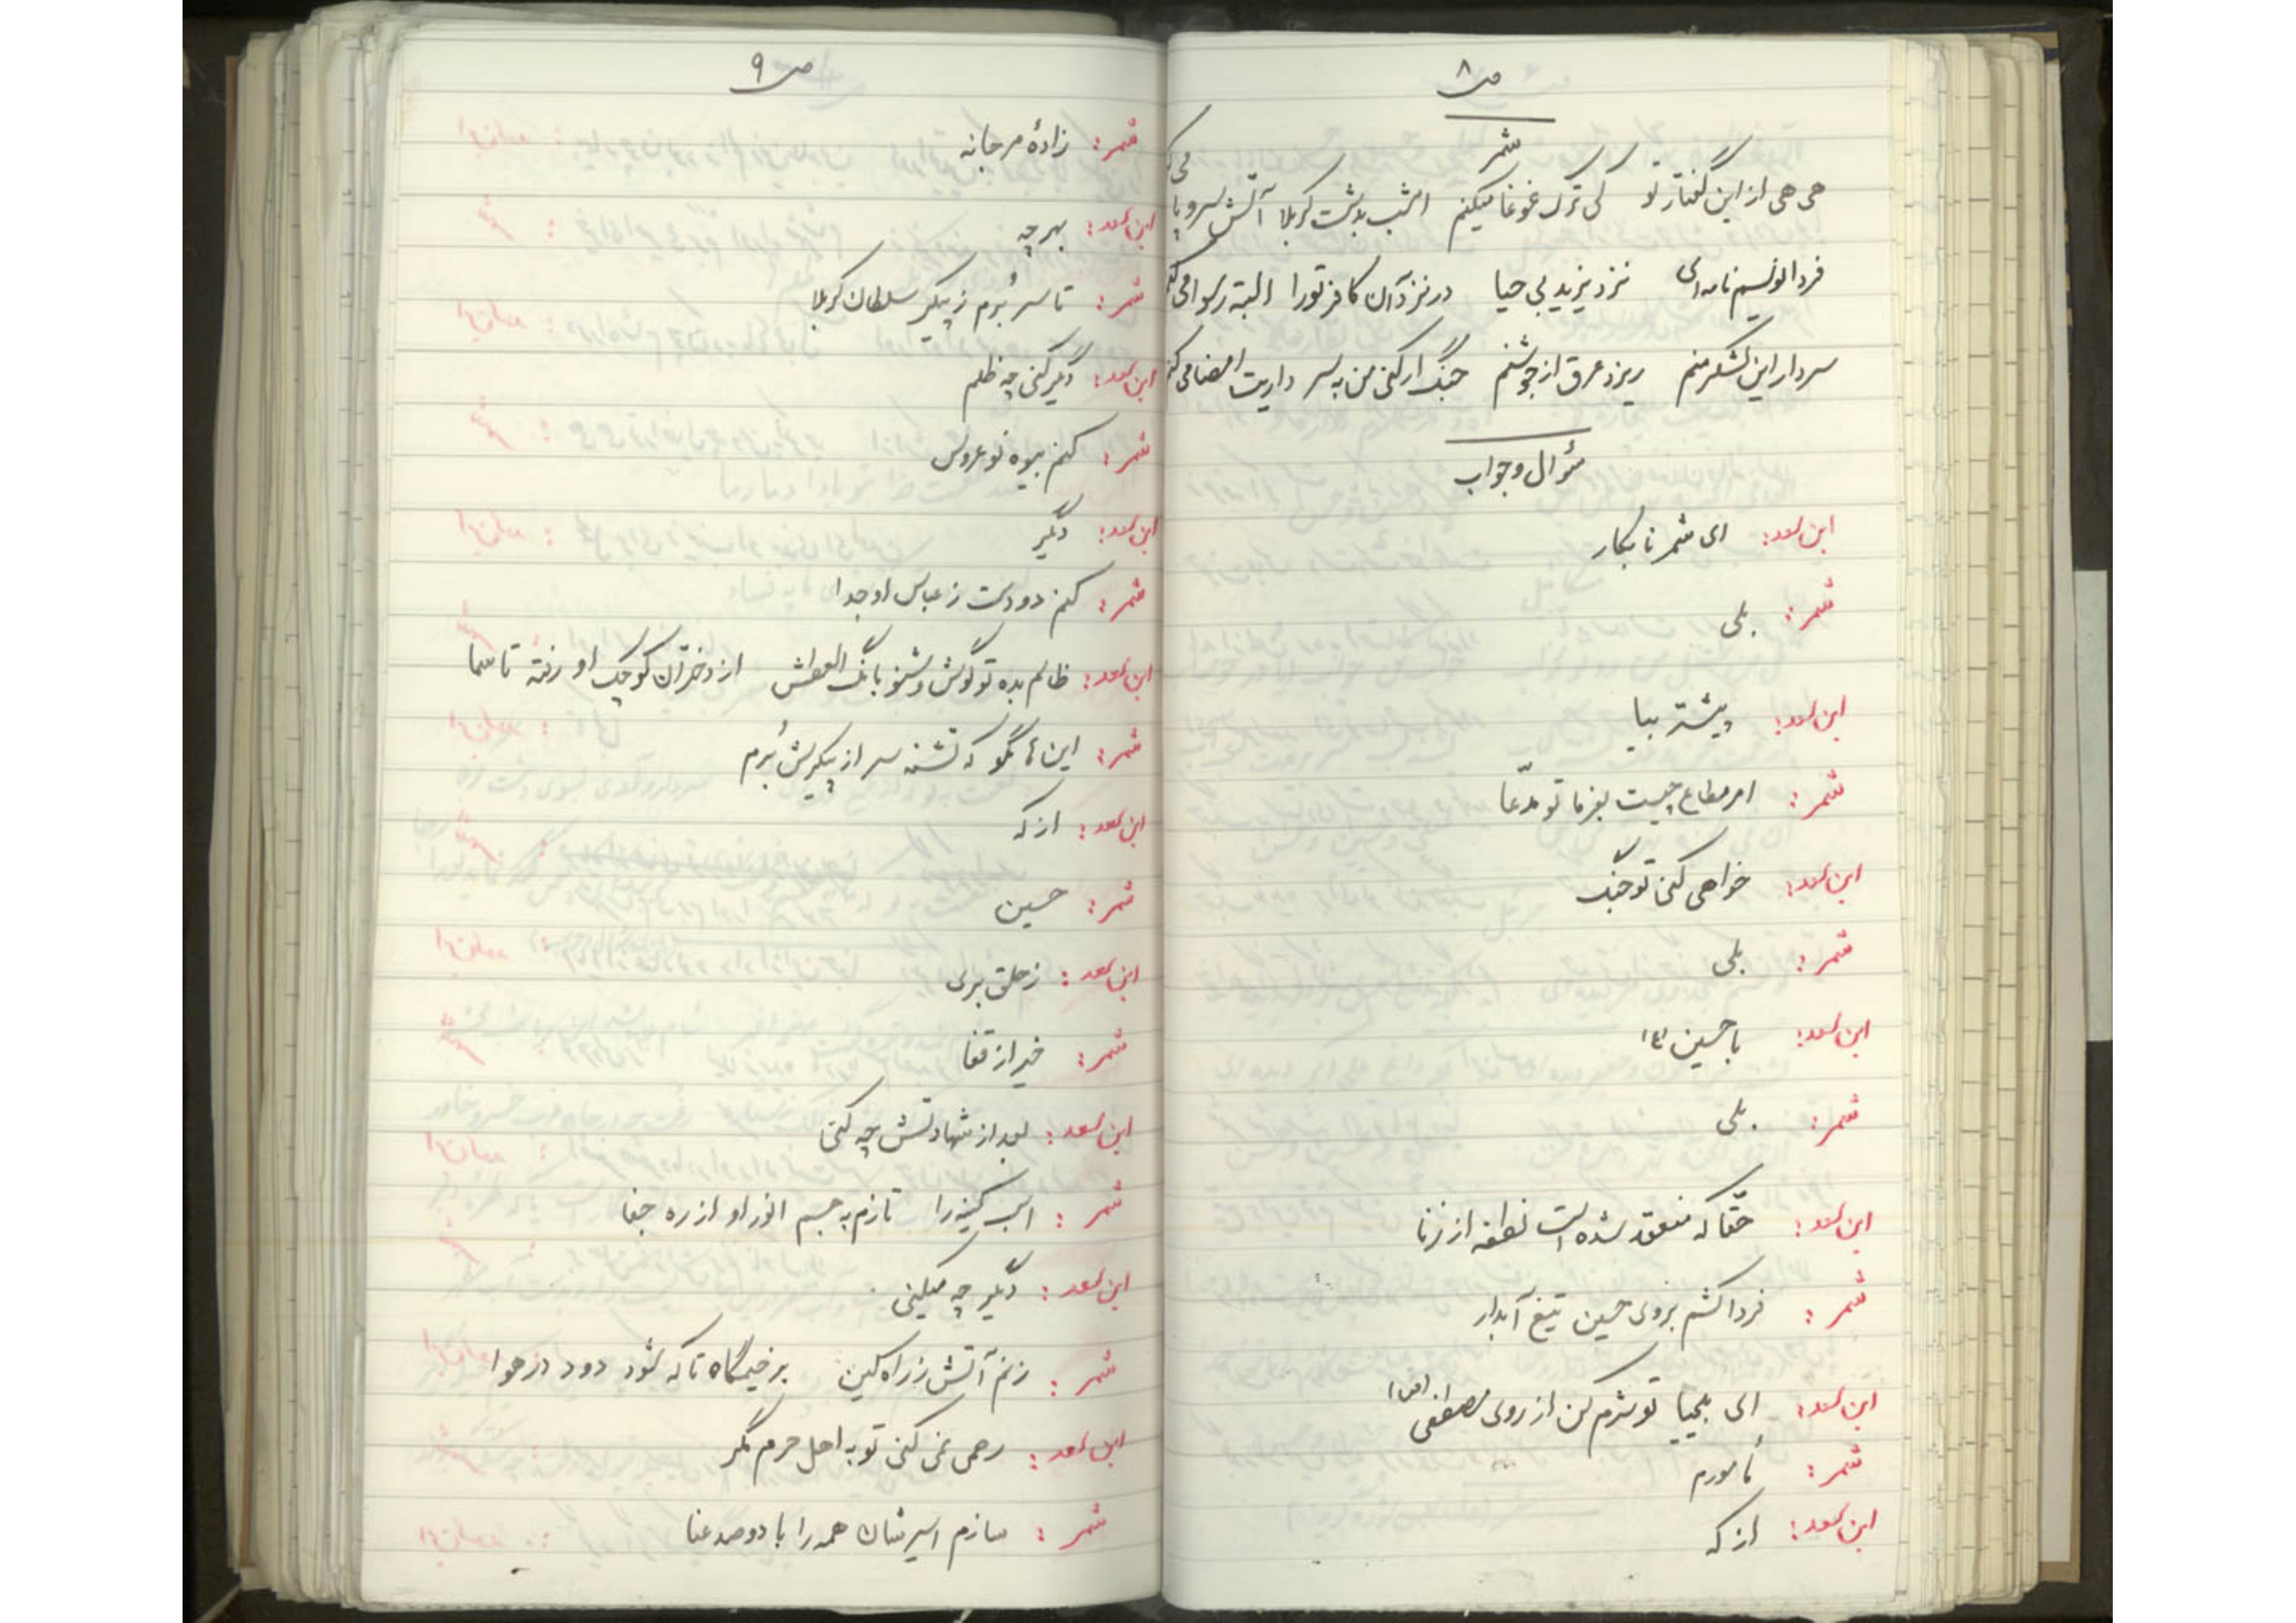 ص ۸
شمر
هی هی از این گفتار تو کی ترک غوغا میکنم امشب بدشت کربلا آتش سر و پا می
فردا نویسم نامه ای نزد یزید بی حیا در نزد آن کافر تو را البته رسوا می کنم
سردار این لشکر منم ریزد عرق از جوشنم جنگ ار کنی من به سر داریت امضا می کنم
سئوال و جواب
ابن سعد: ای شمر نابکار
شمر: بلی
ابن سعد: پیشتر بیا
شمر: امر مطاع چیست بفرما تو مدّعا
ابن سعد: خواهی کنی تو جنگ
شمر: بلی
ابن سعد: با حسین (ع)
شمر: بلی
ابن سعد: حقّا که منعقد شده است نطفه از زنا
شمر: فردا کشم بروی حسین تیغ آبدار
ابن سعد: ای بیحیا تو شرم کن از روی مصطفی (ص)
شمر: مأمورم
ابن سعد: از که
ص ۹
شمر: زادهٔ مرجانه
ابن سعد: بهر چه
شمر: تا سر بُرم ز پیکر سلطان کربلا
ابن سعد: دیگر کنی چه ظلم
شمر: کنم بیوه نو عروس
ابن سعد: دیگر
شمر: کنم دو دست ز عباس او جدا
ابن سعد: ظالم بده تو گوش و شنو بانگ العطش از دختران کوچک او رفته تا سما
شمر: اینها مگو که تشنه سر از پیکرش بُرم
ابن سعد: از که
شمر: حسین
ابن سعد: ز حلق بری
شمر: خیر از قفا
ابن سعد: بعد از شهادتش چه کنی
شمر: اسب کینه را تازم به جسم انور او از ره جفا
ابن سعد: دیگر چه میکنی
شمر: زنم آتش ز راه کین بر خیمگاه تا که شود دود در هوا
ابن سعد: رحمی نمی کنی تو به اهل حرم مگر
شمر: سازم اسیرشان همه را با دو صد عنا